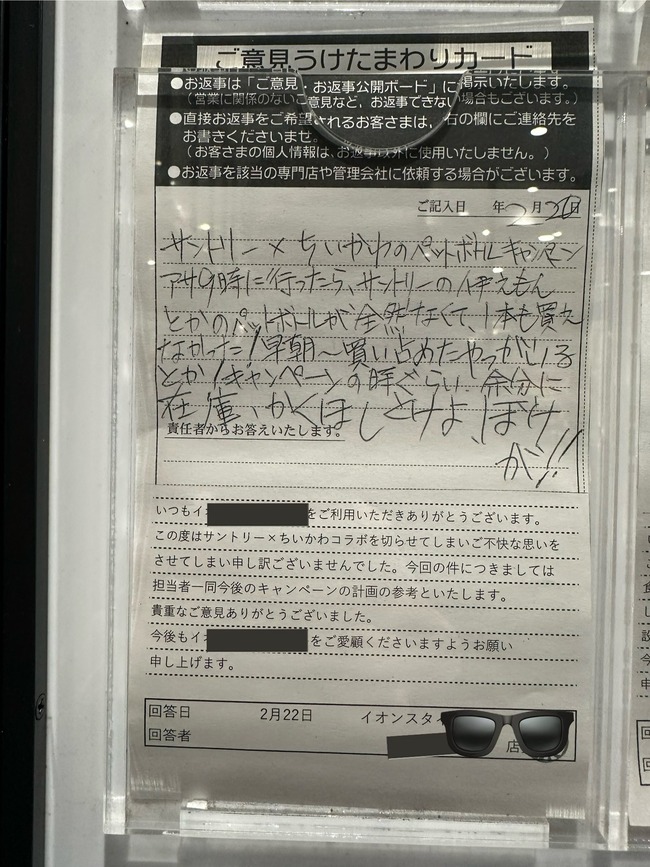 ご意見うけたまわりカード
●お返事は「ご意見・お返事公開ボード」に掲示いたします。
（営業に関係のないご意見など，お返事できない場合もございます。）
●直接お返事をご希望されるお客さまは，右の欄にご連絡先を
お書きくださいませ。
（お客さまの個人情報は，お返事以外に使用いたしません。）
●お返事を該当の専門店や管理会社に依頼する場合がございます。
ご記入日　年2月20日
サントリー×ちいかわのペットボトルキャンペーン
アサ9時に行ったら、サントリーの伊えもん
とかのペットボトルが全然なくて、1本も買え
なかった!早朝〜買い占めたやつがいる
とか!キャンペーンの時ぐらい、余分に
在庫、かくほしとけよ、ぼけ
が!!
責任者からお答えいたします。
いつもイオ をご利用いただきありがとうございます。
この度はサントリー×ちいかわコラボを切らせてしまいご不快な思いを
させてしまい申し訳ございませんでした。今回の件につきましては
担当者一同今後のキャンペーンの計画の参考といたします。
貴重なご意見ありがとうございました。
今後もイオ をご愛顧くださいますようお願い
申し上げます。
回答日　2月22日　イオンスタイ
回答者　店